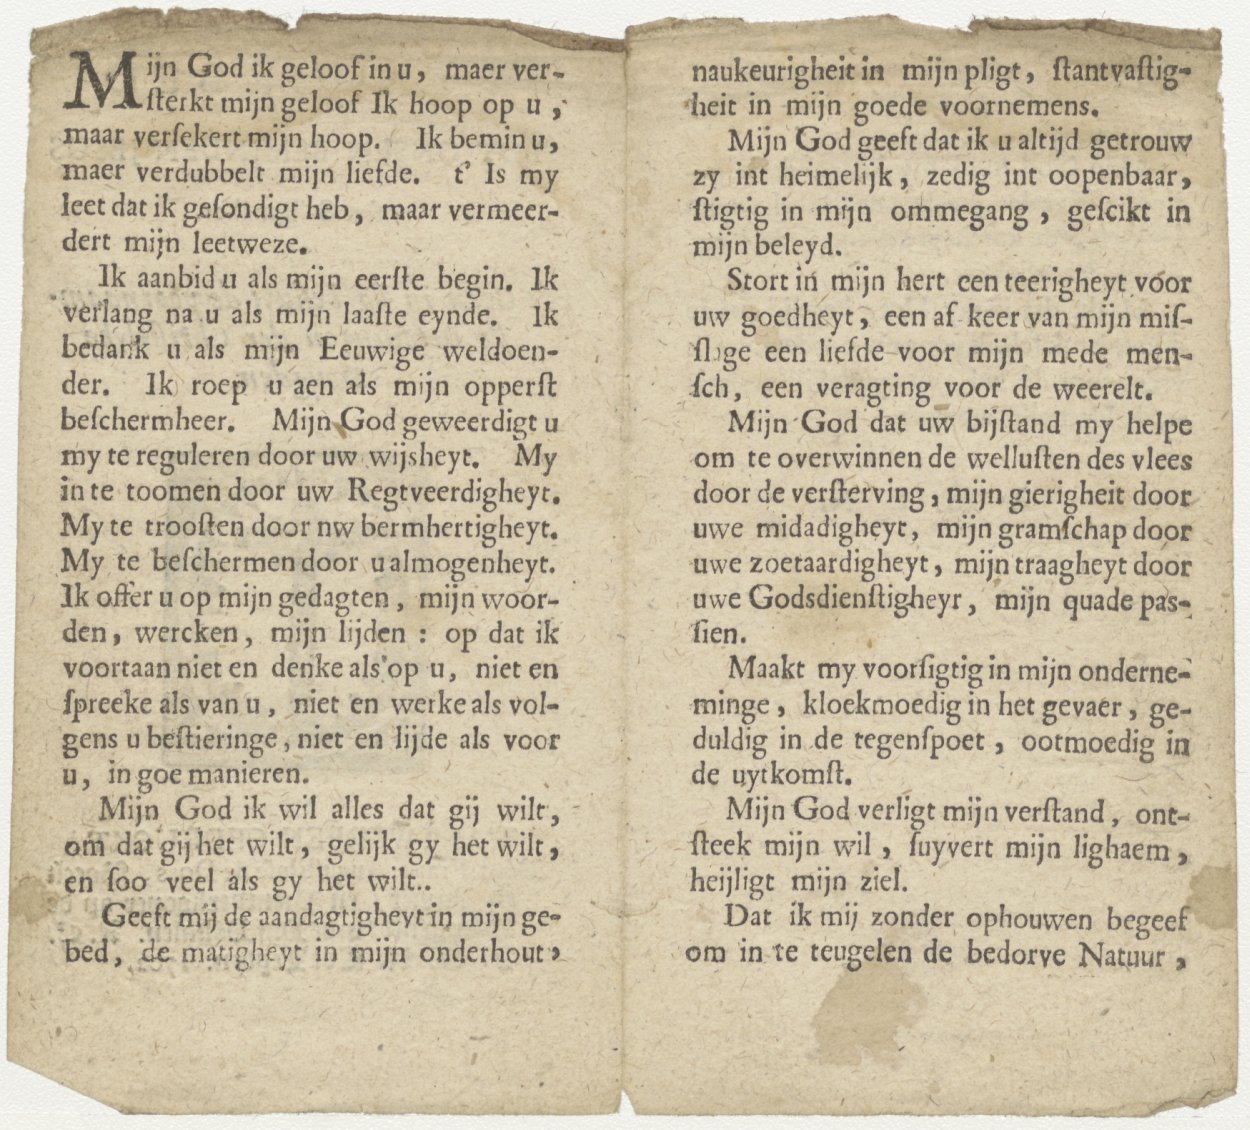 Mijn God ik geloof in u, maer ver-
ſterkt mijn geloof Ik hoop op u,
maar verſekert mijn hoop. Ik bemin u,
maer verdubbelt mijn liefde. t' Is my
leet dat ik geſondigt heb, maar vermeer-
dert mijn leetweze.
Ik aanbid u als mijn eerſte begin. Ik
verlang na u als mijn laaſte eynde. Ik
bedank u als mijn Eeuwige weldoen-
der. Ik roep u aen als mijn opperſt
beſchermheer. Mijn God geweerdigt u
my te reguleren door uw wijsheyt. My
in te toomen door uw Regtveerdigheyt.
My te trooſten door nw bermhertigheyt.
My te beſchermen door u almogenheyt.
Ik offer u op mijn gedagten, mijn woor-
den, wercken, mijn lijden : op dat ik
voortaan niet en denke als op u, niet en
ſpreeke als van u, niet en werke als vol-
gens u beſtieringe, niet en lijde als voor
u, in goe manieren.
Mijn God ik wil alles dat gij wilt,
om dat gij het wilt, gelijk gy het wilt,
en ſoo veel als gy het wilt..
Geeft mij de aandagtigheyt in mijn ge-
bed, de matigheyt in mijn onderhout,
naukeurigheit in mijn pligt, ſtantvaſtig-
heit in mijn goede voornemens.
Mijn God geeft dat ik u altijd getrouw
zy int heimelijk, zedig int oopenbaar,
ſtigtig in mijn ommegang, geſcikt in
mijn beleyd.
Stort in mijn hert een teerigheyt voor
uw goedheyt, een af keer van mijn miſ-
ſlage een liefde voor mijn mede men-
ſch, een veragting voor de weerelt.
Mijn God dat uw bijſtand my helpe
om te overwinnen de welluſten des vlees
door de verſterving, mijn gierigheit door
uwe midadigheyt, mijn gramſchap door
uwe zoetaardigheyt, mijn traagheyt door
uwe Godsdienſtigheyr, mijn quade paſ-
ſien.
Maakt my voorſigtig in mijn onderne-
minge, kloekmoedig in het gevaer, ge-
duldig in de tegenſpoet, ootmoedig in
de uytkomſt.
Mijn God verligt mijn verſtand, ont-
ſteek mijn wil, ſuyvert mijn lighaem,
heijligt mijn ziel.
Dat ik mij zonder ophouwen begeef
om in te teugelen de bedorve Natuur,